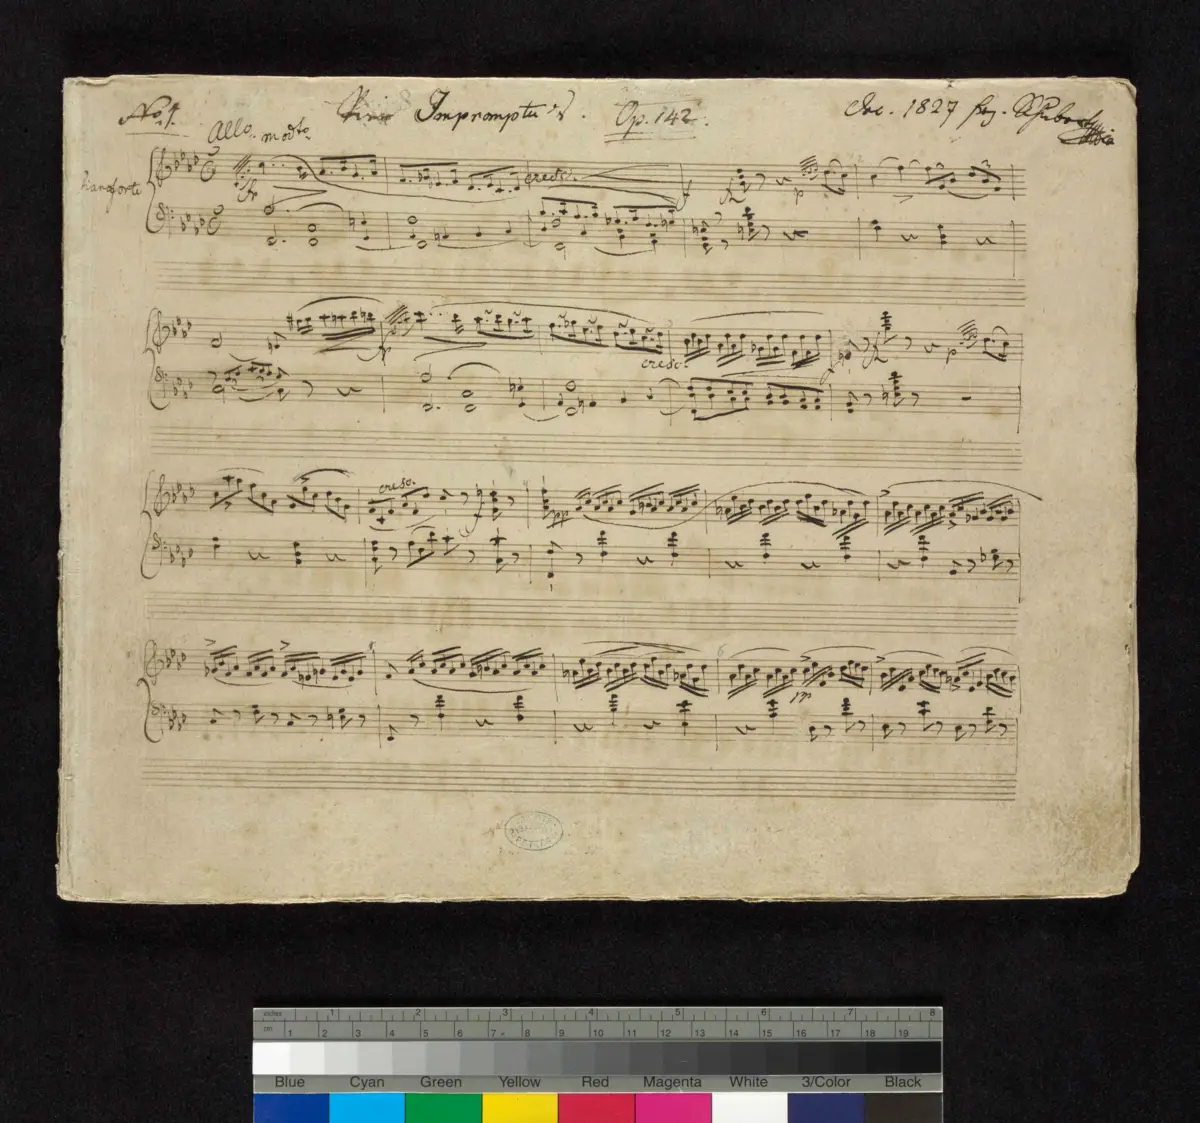 No. 1. Vier Impromptu's. Op. 142. Dec. 1827 frz. Schubert
Allo. modto.
Pianoforte
fp cresc. f p
p cresc. f p
cresc. f pp
pp
inches 1 2 3 4 5 6 7 8
cm 1 2 3 4 5 6 7 8 9 10 11 12 13 14 15 16 17 18 19
Blue Cyan Green Yellow Red Magenta White 3/Color Black